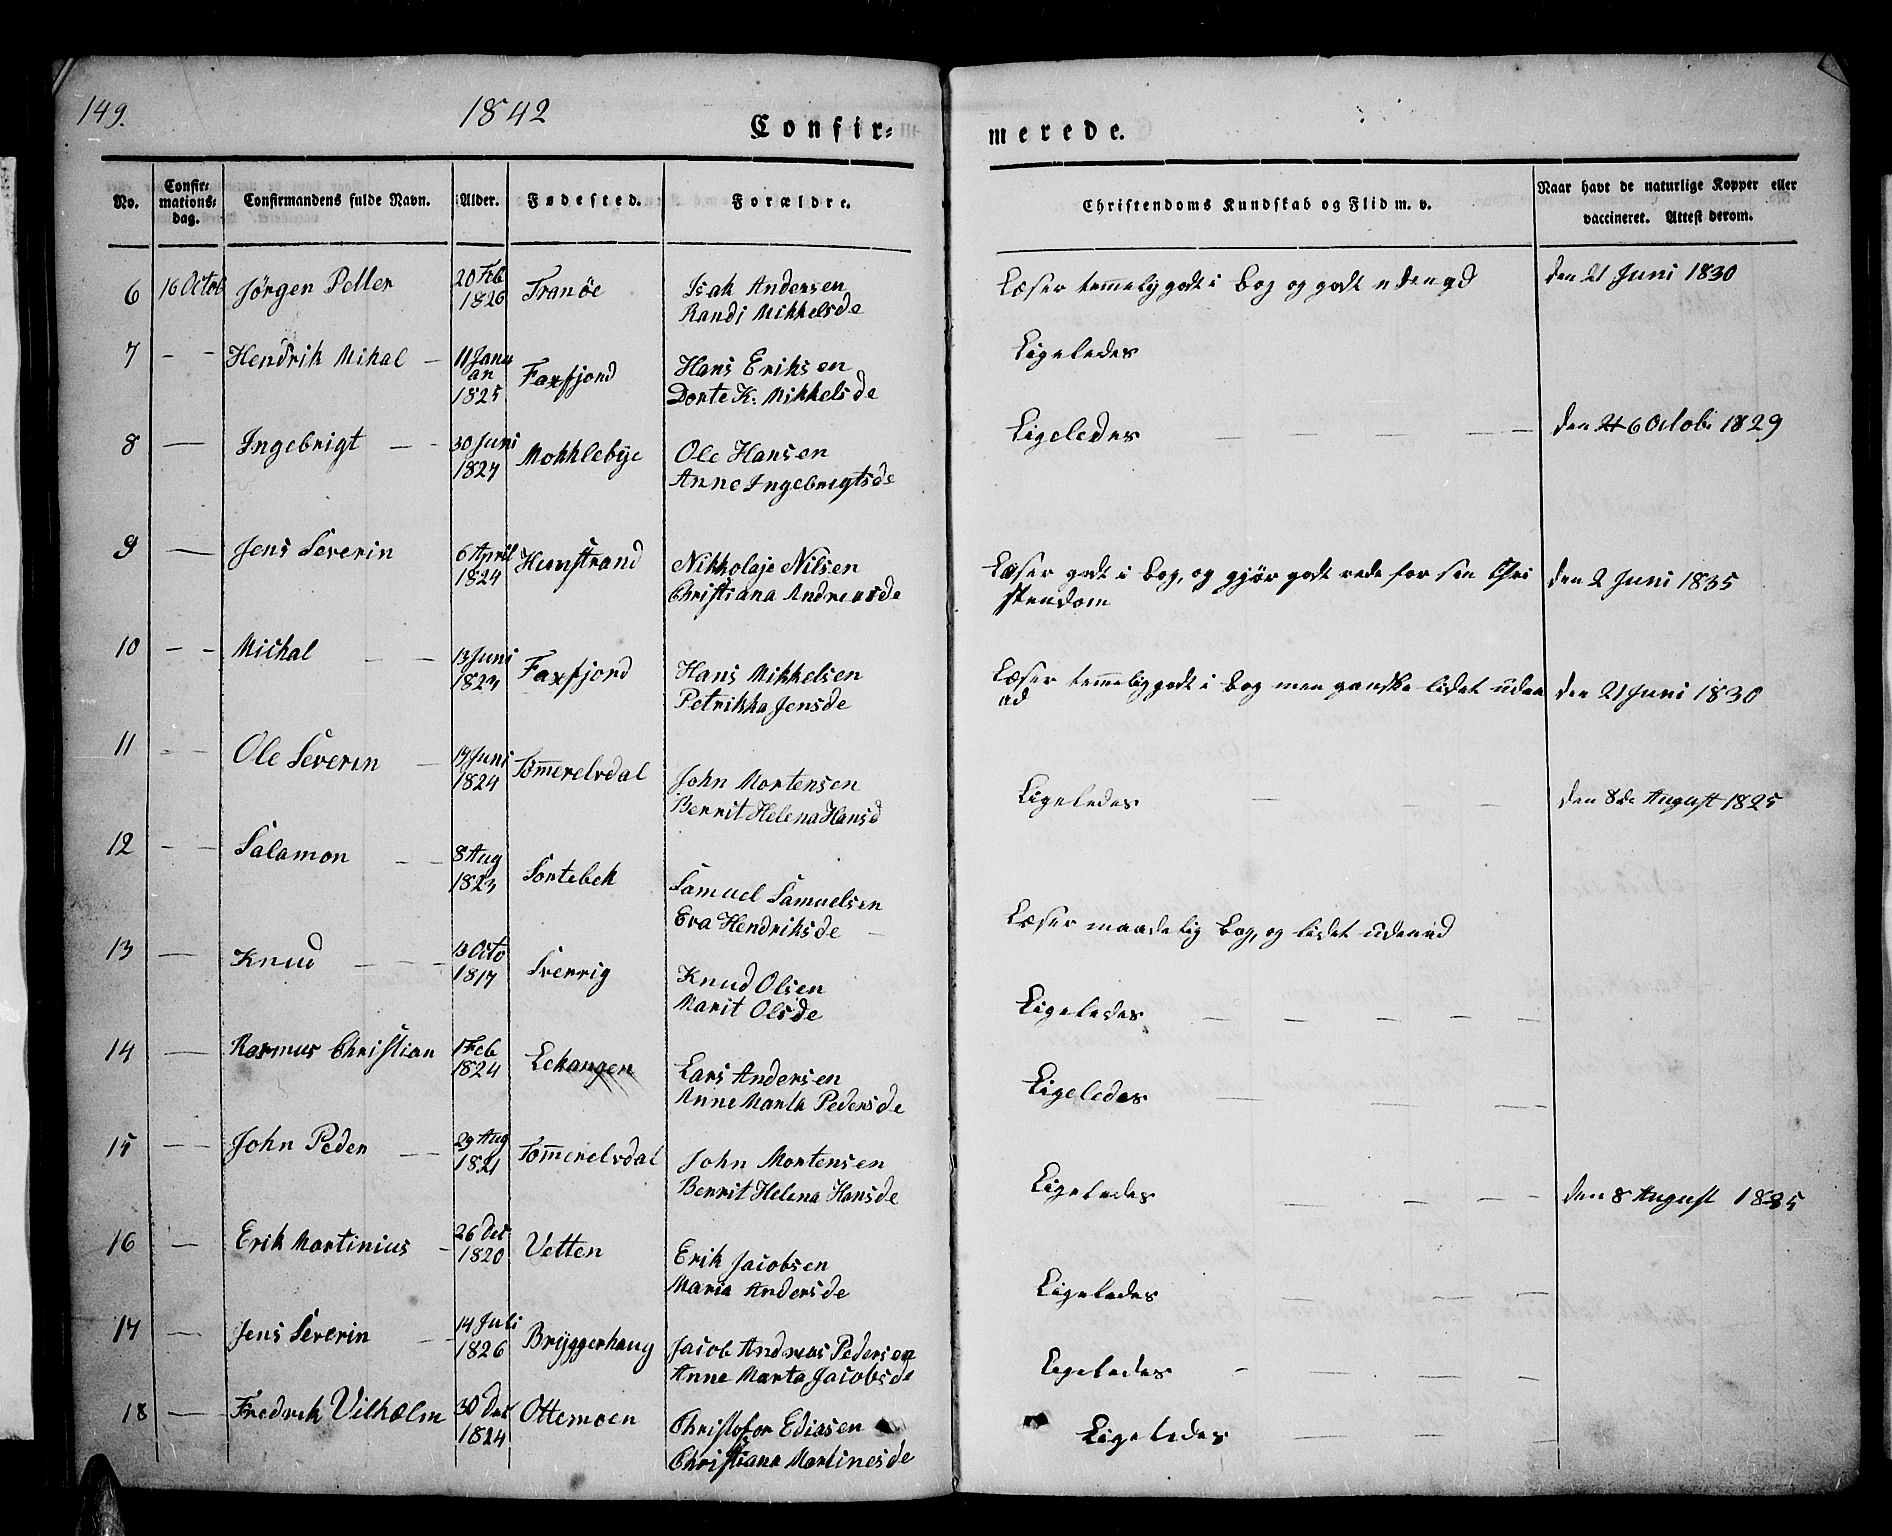 149.
1842
Confir=
merede.
No.
Confir=
mations=
dag.
Confirmandens fulde Navn.
Alder.
Fødested.
Forældre.
Christendoms Kundskab og Flid m. v.
Naar havt de naturlige Kopper eller
vaccineret. Attest derom.
6 16 Octob Jörgen Petter 20 Feb
1826
Tranöe
Isak Andersen
Randi Mikkelsde
Læser temmelig godt i bog og godt udenad
den 21 Juni 1830
7 — — Hendrik Mikal — 11 Janu
ar
1825
Faxfjord
Hans Eriksen
Dorte K. Mikkelsde
Ligeledes
8 — Ingebrigt — — 30 Juni
1827
Mokklebye
Ole Hansen
Anne Ingebrigtsde
Ligeledes — — — — —
den 6 Octobr 1829
9 — Jens Severin
6 April
1824
Hunstrand
Nikkolaje Nilsen
Christiana Andreasde
Læser godt i bog, og gjör godt rede for sin Chri
stendom
den 2 Juni 1835
10 — — Michal — — 13 Juni
1823
Faxfjord
Hans Mikkelsen
Petrikka Jensde
Læser temmelig godt i bog men ganske lidet uden
ad
den 21 Juni 1830
11 — — Ole Severin — 19 Juni
1824
Tömmerelvdal
John Mortensen
Berrit Helena Hansd
Ligeledes — — —
den 8de August 1825
12 — — Salamon — — 8 Aug
1823
Sortebek
Samuel Samuelsen
Eva Hendriksde —
Læser maadelig bog, og lidet udenad
13 — Knud — — — 13 Octo
1817
Sverrig
Knud Olsen
Marit Olsde
Ligeledes — — — — —
14 — Rasmus Christian 1 Feb
1824
Lekangen
Lars Andersen
Anne Marta Pedersde
Ligeledes — — —
15 — John Peder — — 29 Aug
1821
Tömmerelvdal
John Mortensen
Berrit Helena Hansde
Ligeledes — — — —
den 8 August 1825
16 — Erik Martinius — 26 Det
1820
Vetten
Erik Jacobsen
Maria Andersde
Ligeledes — — —
17 — Jens Severin — — 14 Juli
1826
Bryggerhaug
Jacob Andreas Pedersen
Anne Marta Jacobsde
Ligeledes — — —
18 — Fredrik Vilhelm 30 Det
1824
Ottemoen
Christofor Ediasen
Christiana Martinesde
Ligeledes — — —